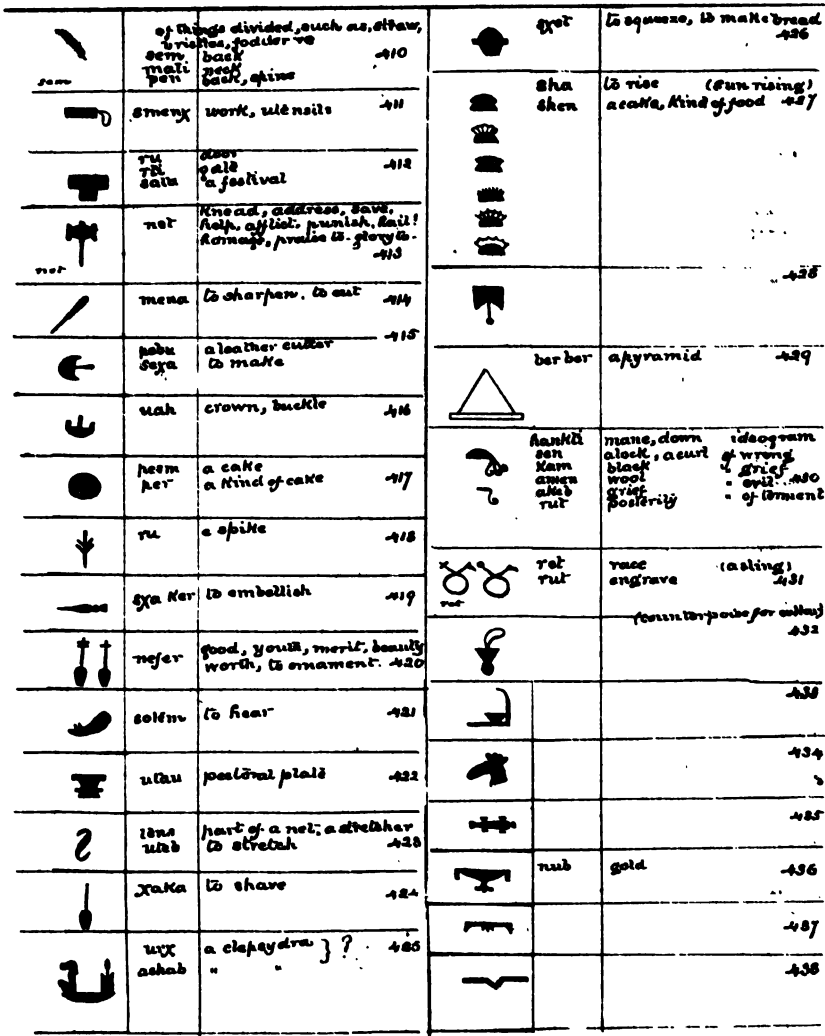 of things divided, such as, straw,
bristles, fodder
sem back 410
mati neck
pen back, spine
sem
smenχ work, utensils 411
ru door
gate 412
a festival
net Knead, address, save,
help, afflict, punish, hail!
homage, praise to. glory to.
413
net
mena to sharpen. to cut 414
415
a leather cutter
seχa to make
uah crown, buckle 416
a cake
per a kind of cake 417
ru a spike 418
sχa Ker to embellish 419
nefer good, youth, merit, beauty
worth, to ornament. 420
sotem to hear 421
utau pectoral plate 422
part of a net; a stretcher
to stretch 423
χaKa to shave 424
a clepsydra } ? 425
ashab " "
to squeeze, to make bread
426
sha to rise (sun rising)
shen a cake, Kind of food 427
428
ber ber a pyramid 429
hankti mane, down ideogram
sen a lock, a curl of wrong
Kam black " grief
amen wool " evil 430
akeb grief " of torment
rut posterity
ret race (a sling)
rut engrave 431
ret
(counterpoise for collar)
432
433
434
435
nub gold 436
437
438